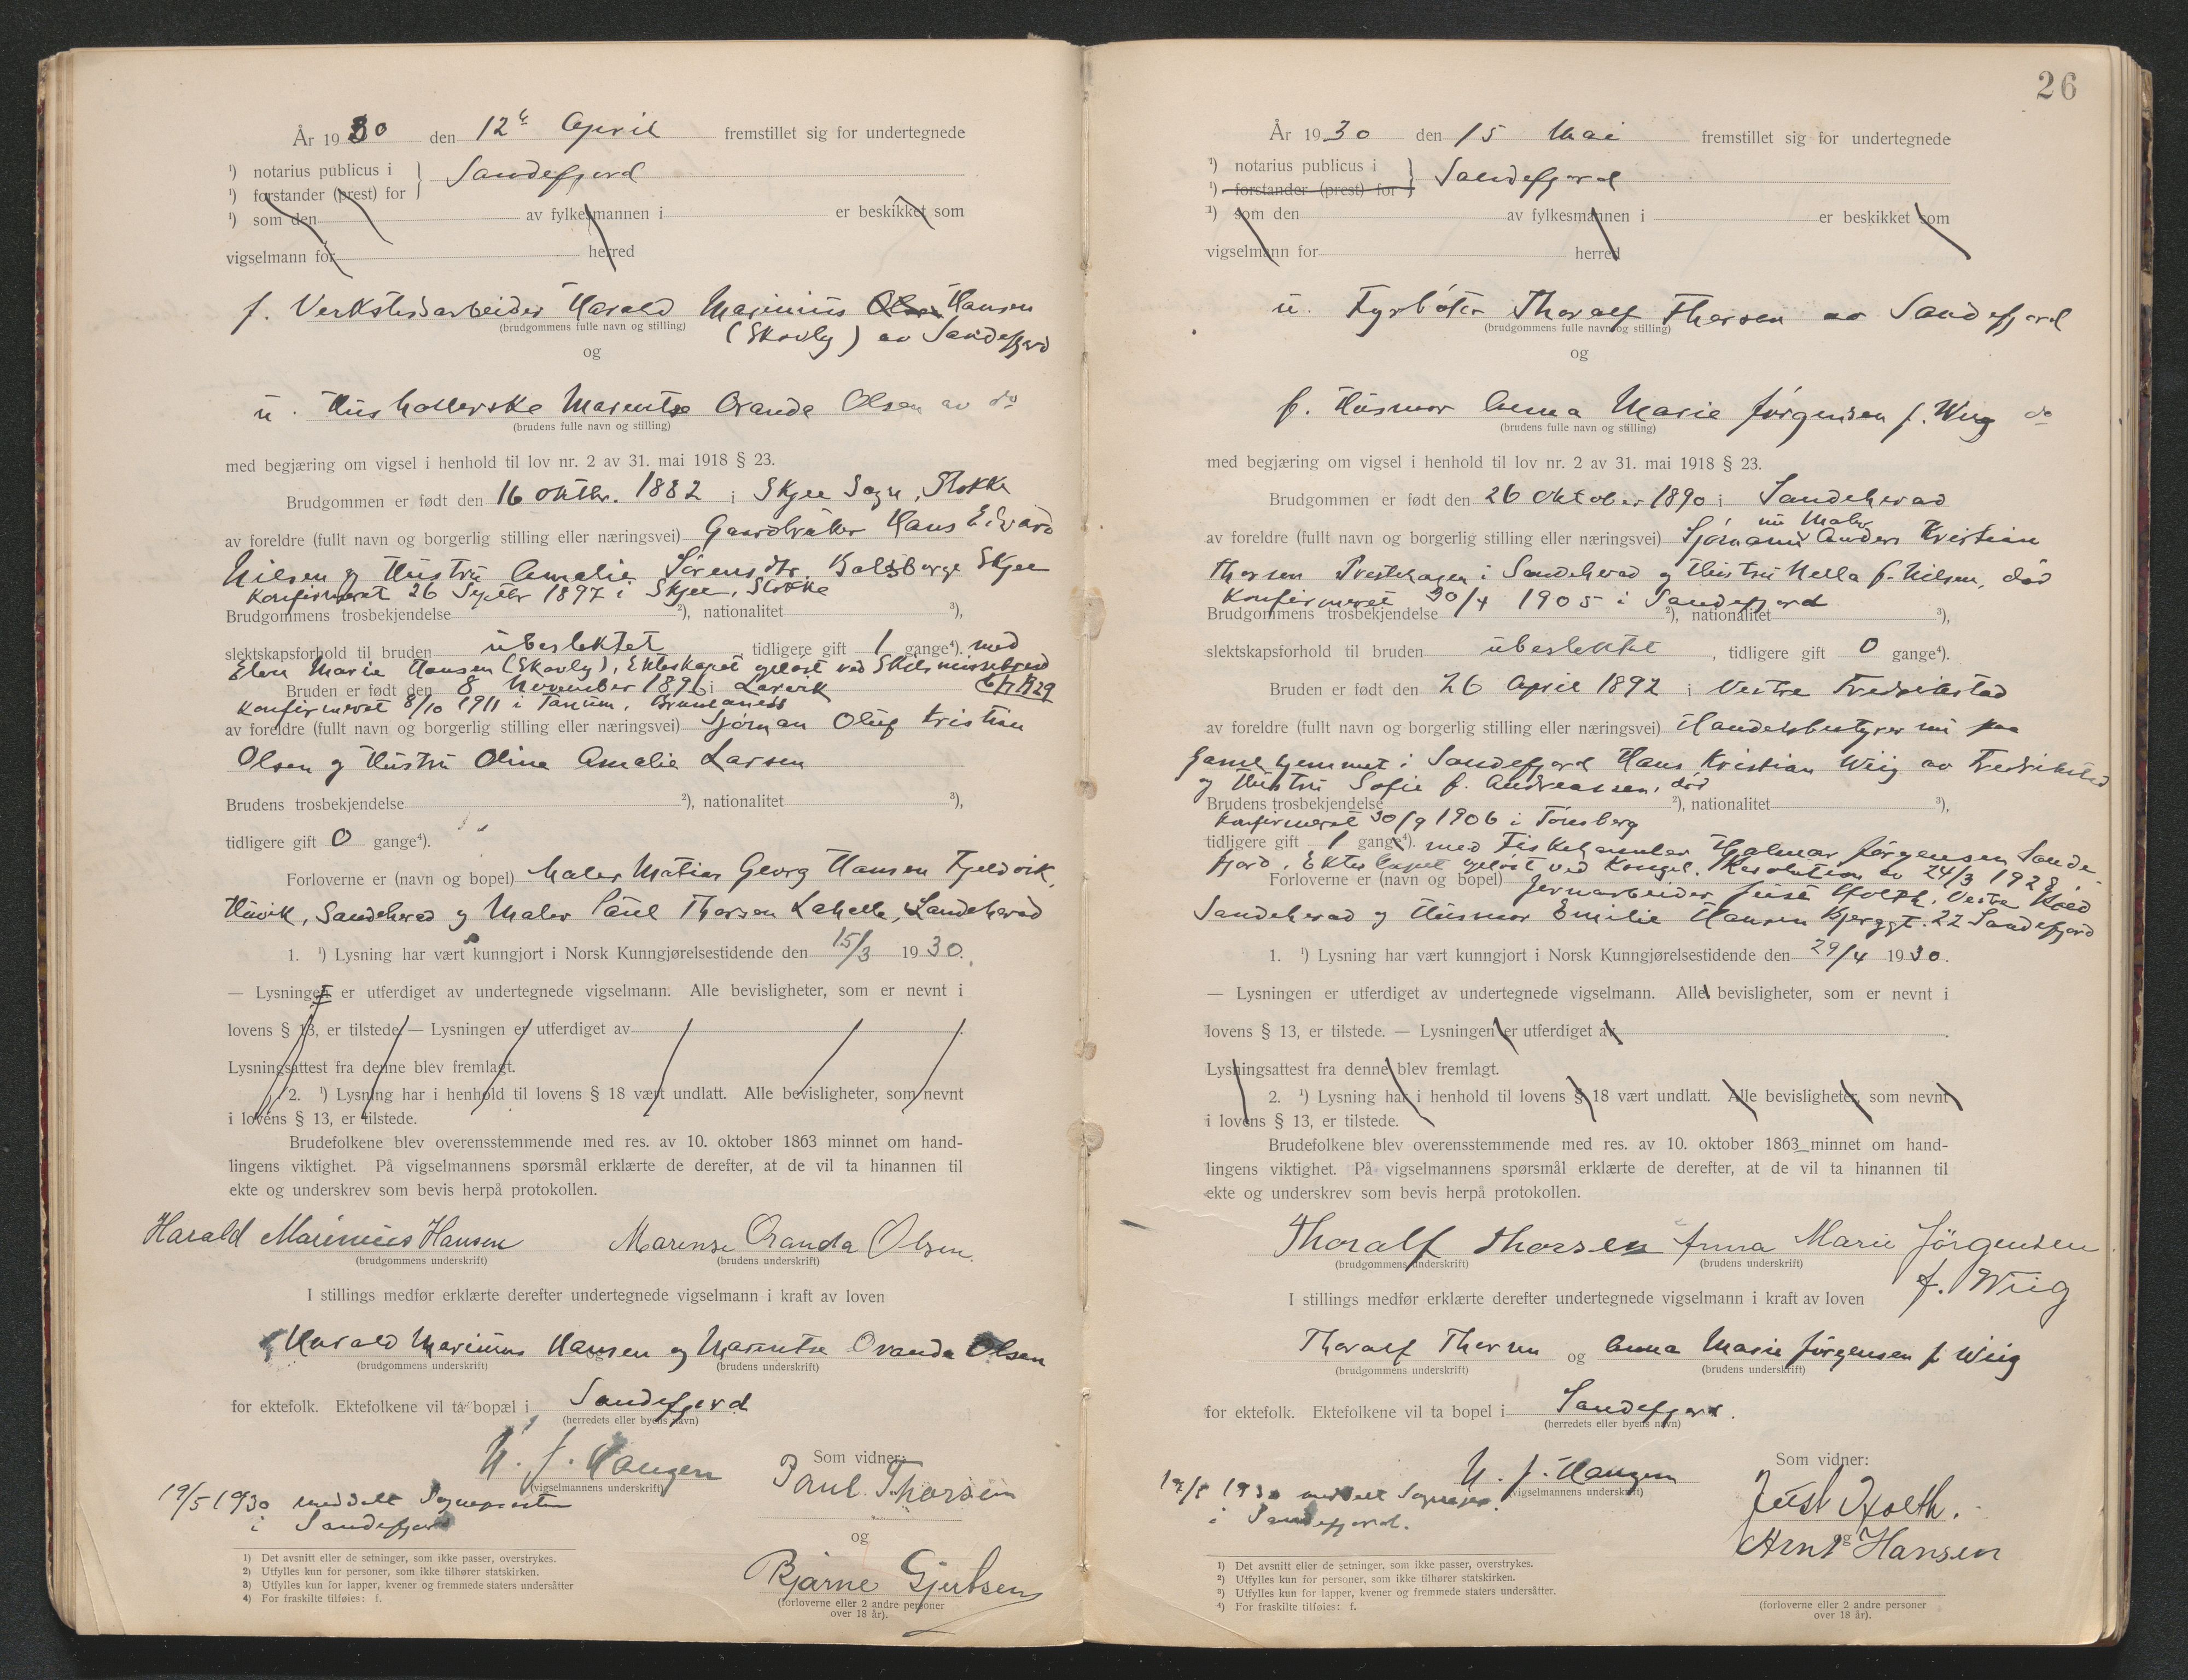 År 1930 den 12te April fremstillet sig for undertegnede
¹) notarius publicus i
¹) forstander (prest) for } Sandefjord
¹) som den av fylkesmannen i er beskikket som
vigselmann for herred
f. Verkstedsarbeider Harald Marinius Olsen Hansen
(brudgommens fulle navn og stilling) (Skovly) av Sandefjord
og
u. Husholderske Marentse Oranda Olsen av do
(brudens fulle navn og stilling)
med begjæring om vigsel i henhold til lov nr. 2 av 31. mai 1918 § 23.
Brudgommen er født den 16 Oktbr. 1882 i Skjee Sogn, Stokke
av foreldre (fullt navn og borgerlig stilling eller næringsvei) Gaardbruker Hans Edvard
Nilsen og Hustru Amalie Sørensdtr. Skjee
Konfirmeret 26 Septbr 1897 i Skjee, Stokke
Brudgommens trosbekjendelse ²), nationalitet ³),
slektskapsforhold til bruden ubeslektet tidligere gift 1 gange⁴). med
Elen Marie Hansen (Skovly), Ekteskapet opløst ved Skilsmissebevil
Bruden er født den 8 November 1896 i Larvik
Konfirmeret 8/10 1911 i Tanum, Brunlanes
av foreldre (fullt navn og borgerlig stilling eller næringsvei) Sjøman Oluf Kristian
Olsen og Hustru Oline Amalie Larsen
Brudens trosbekjendelse ²), nationalitet ³),
tidligere gift 0 gange⁴).
Forloverne er (navn og bopel) Maler Matias Georg Hansen Fjeldvik,
Huvik, Sandeherad og Maler Paul Thorsen Lahelle, Sandeherad
1. ¹) Lysning har vært kunngjort i Norsk Kunngjørelsestidende den 15/3 1930.
— Lysningen er utferdiget av undertegnede vigselmann. Alle bevisligheter, som er nevnt i
lovens § 13, er tilstede. — Lysningen er utferdiget av
Lysningsattest fra denne blev fremlagt.
2. ¹) Lysning har i henhold til lovens § 18 vært undlatt. Alle bevisligheter, som nevnt
i lovens § 13, er tilstede.
Brudefolkene blev overensstemmende med res. av 10. oktober 1863 minnet om hand-
lingens viktighet. På vigselmannens spørsmål erklærte de derefter, at de vil ta hinannen til
ekte og underskrev som bevis herpå protokollen.
Harald Marinius Hansen Marense Oranda Olsen.
(brudgommens underskrift) (brudens underskrift)
I stillings medfør erklærte derefter undertegnede vigselmann i kraft av loven
Harald Marinius Hansen og Marentse Oranda Olsen
(brudgommens underskrift) (brudens underskrift)
for ektefolk. Ektefolkene vil ta bopæl i Sandefjord
(herredets eller byens navn)
N. J. Haugen Som vidner:
(vigselmannens underskrift) Paul Thorsen
19/5 1930 meddelt Sognepresten
i Sandefjord
og
Bjarne Gjertsen
(forloverne eller 2 andre personer
over 18 år).
1) Det avsnitt eller de setninger, som ikke passer, overstrykes.
2) Utfylles kun for personer, som ikke tilhører statskirken.
3) Utfylles kun for lapper, kvener og fremmede staters undersåtter
4) For fraskilte tilføies: f.
26
År 1930 den 15 Mai fremstillet sig for undertegnede
¹) notarius publicus i
¹) forstander (prest) for } Sandefjord
¹) som den av fylkesmannen i er beskikket som
vigselmann for herred
u. Fyrbøter Thoralf Thorsen av Sandefjord
(brudgommens fulle navn og stilling)
og
f. Husmor Anna Marie Jørgensen f. Wiig do
(brudens fulle navn og stilling)
med begjæring om vigsel i henhold til lov nr. 2 av 31. mai 1918 § 23.
Brudgommen er født den 26 Oktober 1890 i Sandeherad
nu Maler
av foreldre (fullt navn og borgerlig stilling eller næringsvei) Sjømann Anders Kristian
Thorsen Prestehagen i Sandeherad og Hustru Hella f. Nilsen, død
Konfirmeret 30/4 1905 i Sandefjord
Brudgommens trosbekjendelse ²), nationalitet ³),
slektskapsforhold til bruden ubeslektet, tidligere gift 0 gange⁴).
Bruden er født den 26 April 1892 i Vestre Fredrikstad
av foreldre (fullt navn og borgerlig stilling eller næringsvei) Handelsbestyrer nu paa
Gamlehjemmet i Sandefjord Hans Kristian Wiig av Fredrikstad
og Hustru Sofie f. Andreassen, død
Brudens trosbekjendelse ²), nationalitet ³),
Konfirmeret 30/9 1906 i Tønsberg
tidligere gift 1 gange⁴). med Fiskehandler Hjalmar Jørgensen Sande-
fjord, Ekteskapet opløst ved Kongel. Resolution av 24/3 1928.
Forloverne er (navn og bopel) Jernarbeider Just Holth, Vestre
Sandeherad og Husmor Emilie Hansen Bjerggt. 22 Sandefjord
1. ¹) Lysning har vært kunngjort i Norsk Kunngjørelsestidende den 29/4 1930.
— Lysningen er utferdiget av undertegnede vigselmann. Alle bevisligheter, som er nevnt i
lovens § 13, er tilstede. — Lysningen er utferdiget av
Lysningsattest fra denne blev fremlagt.
2. ¹) Lysning har i henhold til lovens § 18 vært undlatt. Alle bevisligheter, som nevnt
i lovens § 13, er tilstede.
Brudefolkene blev overensstemmende med res. av 10. oktober 1863 minnet om hand-
lingens viktighet. På vigselmannens spørsmål erklærte de derefter, at de vil ta hinannen til
ekte og underskrev som bevis herpå protokollen.
Thoralf Thorsen Anna Marie Jörgensen
(brudgommens underskrift) (brudens underskrift)
f. Wiig
I stillings medfør erklærte derefter undertegnede vigselmann i kraft av loven
Thoralf Thorsen og Anna Marie Jørgensen f. Wiig
(brudgommens underskrift) (brudens underskrift)
for ektefolk. Ektefolkene vil ta bopel i Sandefjord.
(herredets eller byens navn)
N. J. Haugen Som vidner:
(vigselmannens underskrift)
19/5 1930 meddelt Sognepr.
i Sandefjord.
Just Holth.
og
Arnt Hansen
(forloverne eller 2 andre personer
over 18 år).
1) Det avsnitt eller de setninger, som ikke passer, overstrykes.
2) Utfylles kun for personer, som ikke tilhører statskirken.
3) Utfylles kun for lapper, kvener og fremmede staters undersåtter.
4) For fraskilte tilføies: f.